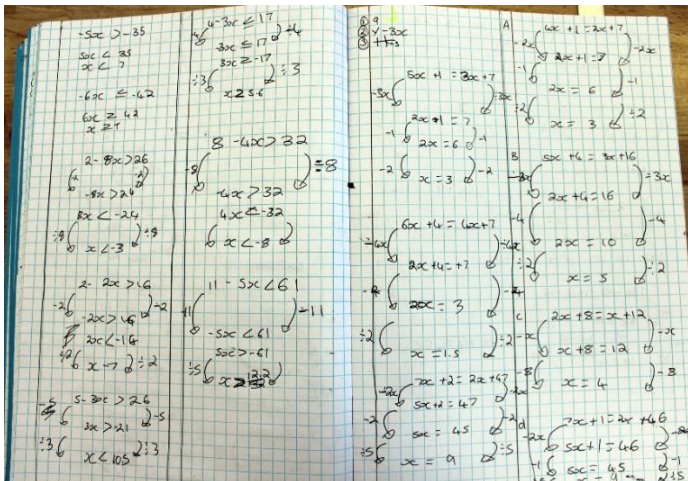 -5x > -35
5x < 35
x < 7
-6x ≤ -42
6x ≥ 42
x ≥ 7
2 - 8x > 26
-8x > 24
8x < -24
÷8 ÷8
x < -3
2 - 2x > 16
-2 -2
-2x > 14
2x < -14
÷2 x -7 ÷2
5 - 3x > 26
-5 -5
3x > 21
÷3 ÷3
x < 105
4 - 3x ≤ 17
3x ≤ 17
3x ≥ -17
÷3 ÷3
x ≥ 5.6
8 - 4x > 32
-8 ÷8
-4x > 32
4x < -32
x < -8
11 - 5x < 61
11 -11
-5x < 61
5x > -61
÷5
① 9
② x -3x
③
5x + 1 = 3x + 7
-3x -3x
2x + 1 = 7
-1 2x = 6 -1
-2 x = 3 -2
6x + 4 = 4x + 7
-4x -4x
2x + 4 = +7
2x = 3
÷2 ÷2
x = 1.5
7x + 2 = 2x + 47
-2x -2x
5x + 2 = 47
-2 -2
5x = 45
÷5 ÷5
x = 9
A
4x + 1 = 2x + 7
-2x -2x
2x + 1 = 7
-1 -1
2x = 6
÷2 ÷2
x = 3
B
5x + 4 = 3x + 16
-3x -3x
2x + 4 = 16
-4 -4
2x = 10
÷2 ÷2
x = 5
C
2x + 8 = x + 12
-x -x
x + 8 = 12
-8 -8
x = 4
d
7x + 1 = 2x + 46
-2x
5x + 1 = 46
-1 -1
5x = 45
÷5